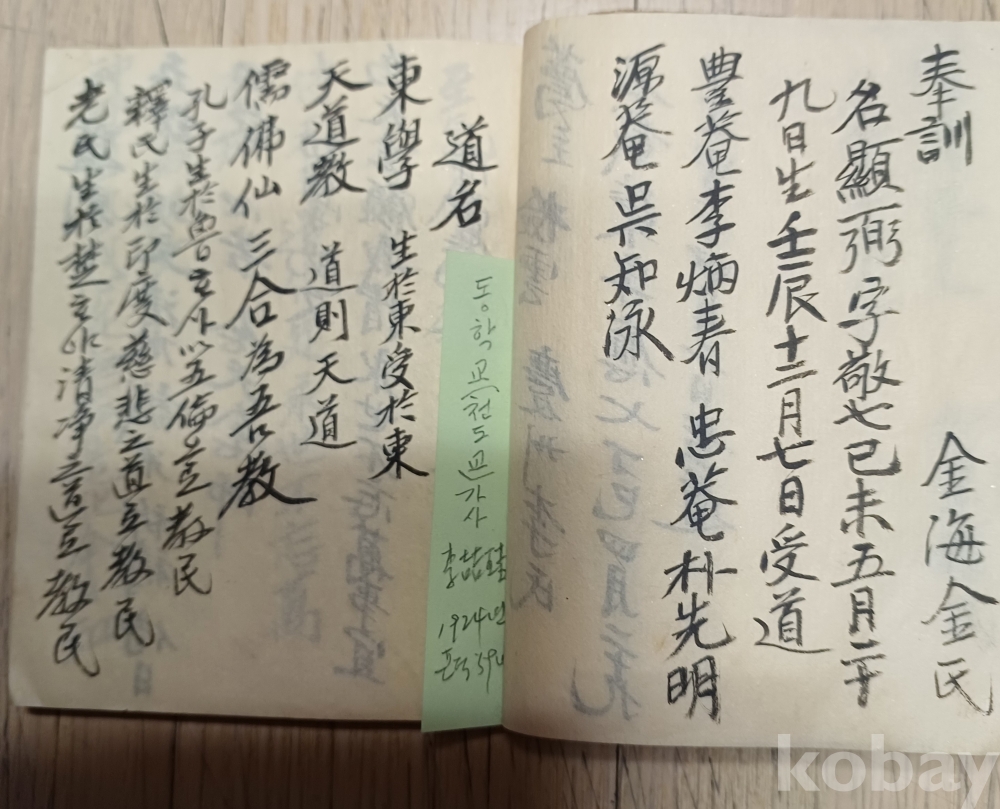 奉訓
金海金氏
名顯弼字敬七己未五月二十
九日生壬辰十二月七日受道
豊菴李炳春 忠菴朴先明
源菴吳知泳
道名
東學 生於東受於東
天道教 道則天道
儒佛仙 三合為吾教
孔子生於魯 以五倫立教民
釋氏生於印度慈悲之道立教民
老氏生於楚 清淨之道立教民
동학교천도교가사
李
1924년
포덕59년
kobay